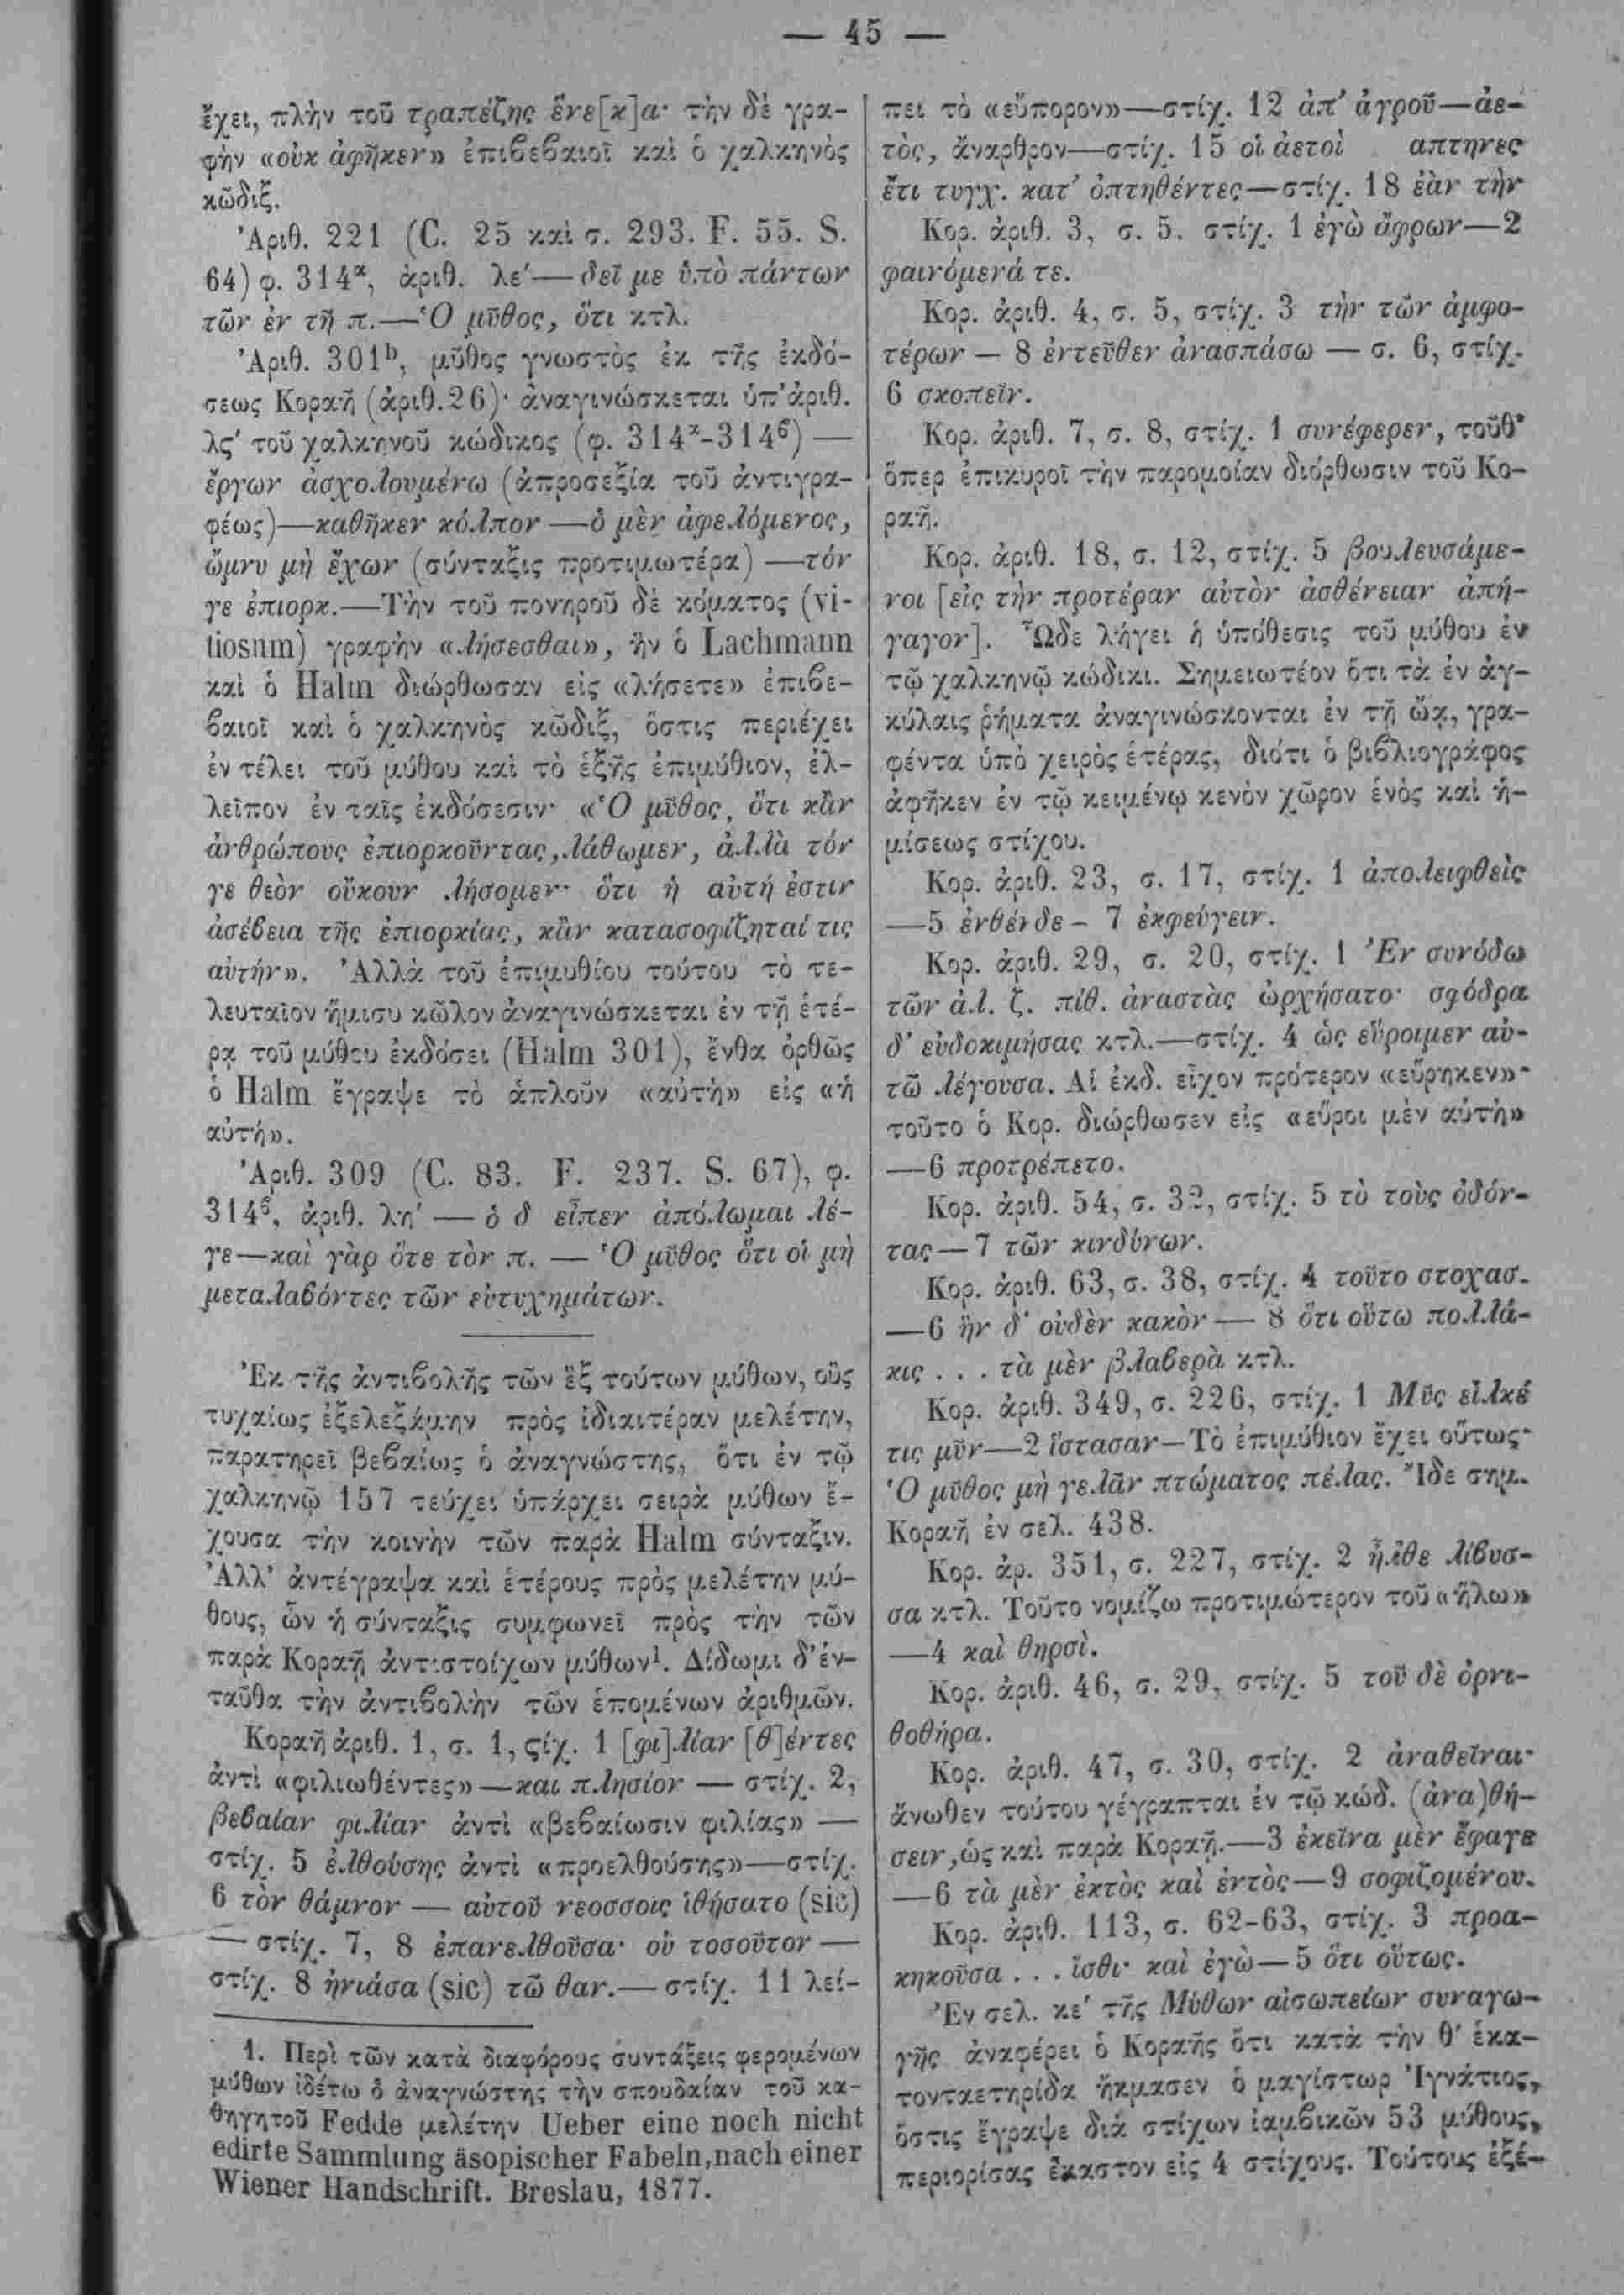 — 45 —
ἔχει, πλὴν τοῦ τραπέζης ἕνε[κ]α· τὴν δὲ γρα-
φὴν «οὐκ ἀφῆκεν» ἐπιβεβαιοῖ καὶ ὁ χαλκηνὸς
κῶδιξ.
Ἀριθ. 221 (C. 25 καὶ σ. 293. F. 55. S.
64) φ. 314α, ἀριθ. λεʹ — δεῖ με ὑπὸ πάντων
τῶν ἐν τῇ π.—Ὁ μῦθος, ὅτι κτλ.
Ἀριθ. 301b, μῦθος γνωστὸς ἐκ τῆς ἐκδό-
σεως Κοραῆ (ἀριθ.26)· ἀναγινώσκεται ὑπ' ἀριθ.
λςʹ τοῦ χαλκηνοῦ κώδικος (φ. 314α-314β) —
ἔργων ἀσχολουμένω (ἀπροσεξία τοῦ ἀντιγρα-
φέως)—καθῆκεν κόλπον —ὁ μὲν ἀφελόμενος,
ὤμνυ μὴ ἔχων (σύνταξις προτιμωτέρα) —τόν
γε ἐπιορκ.—Τὴν τοῦ πονηροῦ δὲ κόμματος (vi-
tiosum) γραφὴν «λήσεσθαι», ἣν ὁ Lachmann
καὶ ὁ Halm διώρθωσαν εἰς «λήσετε» ἐπιβε-
βαιοῖ καὶ ὁ χαλκηνὸς κῶδιξ, ὅστις περιέχει
ἐν τέλει τοῦ μύθου καὶ τὸ ἑξῆς ἐπιμύθιον, ἐλ-
λεῖπον ἐν ταῖς ἐκδόσεσιν· «Ὁ μῦθος, ὅτι κἂν
ἀνθρώπους ἐπιορκοῦντας, λάθωμεν, ἀλλὰ τόν
γε θεὸν οὔκουν λήσομεν· ὅτι ἡ αὐτή ἐστιν
ἀσέβεια τῆς ἐπιορκίας, κἂν κατασοφίζηταί τις
αὐτήν». Ἀλλὰ τοῦ ἐπιμυθίου τούτου τὸ τε-
λευταῖον ἥμισυ κῶλον ἀναγινώσκεται ἐν τῇ ἑτέ-
ρᾳ τοῦ μύθου ἐκδόσει (Halm 301), ἔνθα ὀρθῶς
ὁ Halm ἔγραψε τὸ ἁπλοῦν «αὐτὴ» εἰς «ἡ
αὐτή».
Ἀριθ. 309 (C. 83. F. 237. S. 67), φ.
314β, ἀριθ. ληʹ — ὁ δ εἶπεν ἀπόλωμαι λέ-
γε—καὶ γὰρ ὅτε τὸν π. — Ὁ μῦθος ὅτι οἱ μὴ
μεταλαβόντες τῶν εὐτυχημάτων.
Ἐκ τῆς ἀντιβολῆς τῶν ἓξ τούτων μύθων, οὓς
τυχαίως ἐξελεξάμην πρὸς ἰδιαιτέραν μελέτην,
παρατηρεῖ βεβαίως ὁ ἀναγνώστης, ὅτι ἐν τῷ
χαλκηνῷ 157 τεύχει ὑπάρχει σειρὰ μύθων ἔ-
χουσα τὴν κοινὴν τῶν παρὰ Halm σύνταξιν.
Ἀλλ' ἀντέγραψα καὶ ἑτέρους πρὸς μελέτην μύ-
θους, ὧν ἡ σύνταξις συμφωνεῖ πρὸς τὴν τῶν
παρὰ Κοραῇ ἀντιστοίχων μύθων¹. Δίδωμι δ' ἐν-
ταῦθα τὴν ἀντιβολὴν τῶν ἑπομένων ἀριθμῶν.
Κοραῆ ἀριθ. 1, σ. 1, ςίχ. 1 [φι]λίαν [θ]έντες
ἀντὶ «φιλιωθέντες» —και πλησίον — στίχ. 2,
βεβαίαν φιλίαν ἀντὶ «βεβαίωσιν φιλίας» —
στίχ. 5 ἐλθούσης ἀντὶ «προελθούσης»—στίχ.
6 τὸν θάμνον — αὐτοῦ νεοσσοις ἰθήσατο (sic)
— στίχ. 7, 8 ἐπανελθοῦσα· οὐ τοσοῦτον —
στίχ. 8 ἠνιάσα (sic) τῶ θαν.— στίχ. 11 λεί-
1. Περὶ τῶν κατὰ διαφόρους συντάξεις φερομένων
μύθων ἰδέτω ὁ ἀναγνώστης τὴν σπουδαίαν τοῦ κα-
θηγητοῦ Fedde μελέτην Ueber eine noch nicht
edirte Sammlung äsopischer Fabeln, nach einer
Wiener Handschrift. Breslau, 1877.
πει τὸ «εὔπορον»—στίχ. 12 ἀπ' ἀγροῦ—ἀε-
τὸς, ἄναρθρον—στίχ. 15 οἱ ἀετοὶ . απτηνες
ἔτι τυγχ. κατ' ὀπτηθέντες—στίχ. 18 ἐὰν τὴν
Κορ. ἀριθ. 3, σ. 5. στίχ. 1 ἐγὼ ἄφρων—2
φαινόμενά τε.
Κορ. ἀριθ. 4, σ. 5, στίχ. 3 τὴν τῶν ἀμφο-
τέρων — 8 ἐντεῦθεν ἀνασπάσω — σ. 6, στίχ.
6 σκοπεῖν.
Κορ. ἀριθ. 7, σ. 8, στίχ. 1 συνέφερεν, τοῦθ'
ὅπερ ἐπικυροῖ τὴν παρομοίαν διόρθωσιν τοῦ Κο-
ραῆ.
Κορ. ἀριθ. 18, σ. 12, στίχ. 5 βουλευσάμε-
νοι [εἰς τὴν προτέραν αὐτὸν ἀσθένειαν ἀπή-
γαγον]. Ὧδε λήγει ἡ ὑπόθεσις τοῦ μύθου ἐν
τῷ χαλκηνῷ κώδικι. Σημειωτέον ὅτι τὰ ἐν ἀγ-
κύλαις ῥήματα ἀναγινώσκονται ἐν τῇ ᾤᾳ, γρα-
φέντα ὑπὸ χειρὸς ἑτέρας, διότι ὁ βιβλιογράφος
ἀφῆκεν ἐν τῷ κειμένῳ κενὸν χῶρον ἑνὸς καὶ ἡ-
μίσεως στίχου.
Κορ. ἀριθ. 23, σ. 17, στίχ. 1 ἀπολειφθεὶς
—5 ἐνθένδε – 7 ἐκφεύγειν.
Κορ. ἀριθ. 29, σ. 20, στίχ. 1 Ἐν συνόδω
τῶν ἀλ. ζ. πίθ. ἀναστὰς ὠρχήσατο· σφόδρα
δ' εὐδοκιμήσας κτλ.—στίχ. 4 ὡς εὕροιμεν αὐ-
τῶ λέγουσα. Αἱ ἐκδ. εἶχον πρότερον «εὕρηκεν»·
τοῦτο ὁ Κορ. διώρθωσεν εἰς «εὕροι μὲν αὐτὴ»
—6 προτρέπετο.
Κορ. ἀριθ. 54, σ. 32, στίχ. 5 τὸ τοὺς ὀδόν-
τας—7 τῶν κινδύνων.
Κορ. ἀριθ. 63, σ. 38, στίχ. 4 τοῦτο στοχασ.
—6 ἢν δ' οὐδὲν κακὸν — 8 ὅτι οὕτω πολλά-
κις . . . τὰ μὲν βλαβερὰ κτλ.
Κορ. ἀριθ. 349, σ. 226, στίχ. 1 Μῦς εἷλκέ
τις μῦν—2 ἵστασαν—Τὸ ἐπιμύθιον ἔχει οὕτως·
Ὁ μῦθος μὴ γελᾶν πτώματος πέλας. Ἴδε σημ.
Κοραῆ ἐν σελ. 438.
Κορ. ἀρ. 351, σ. 227, στίχ. 2 ἦλθε λίβυσ-
σα κτλ. Τοῦτο νομίζω προτιμώτερον τοῦ «ἥλω»
—4 καὶ θηρσὶ.
Κορ. ἀριθ. 46, σ. 29, στίχ. 5 τοῦ δὲ ὀρνι-
θοθήρα.
Κορ. ἀριθ. 47, σ. 30, στίχ. 2 ἀναθεῖναι·
ἄνωθεν τούτου γέγραπται ἐν τῷ κώδ. (ἀνα)θή-
σειν, ὡς καὶ παρὰ Κοραῇ.—3 ἐκεῖνα μὲν ἔφαγε
—6 τὰ μὲν ἐκτὸς καὶ ἐντὸς—9 σοφιζομένου.
Κορ. ἀριθ. 113, σ. 62-63, στίχ. 3 προα-
κηκοῦσα . . . ἴσθι· καὶ ἐγὼ—5 ὅτι οὕτως.
Ἐν σελ. κεʹ τῆς Μύθων αἰσωπείων συναγω-
γῆς ἀναφέρει ὁ Κοραῆς ὅτι κατὰ τὴν θʹ ἑκα-
τονταετηρίδα ἤκμασεν ὁ μαγίστωρ Ἰγνάτιος,
ὅστις ἔγραψε διὰ στίχων ἰαμβικῶν 53 μύθους,
περιορίσας ἕκαστον εἰς 4 στίχους. Τούτους ἐξέ-